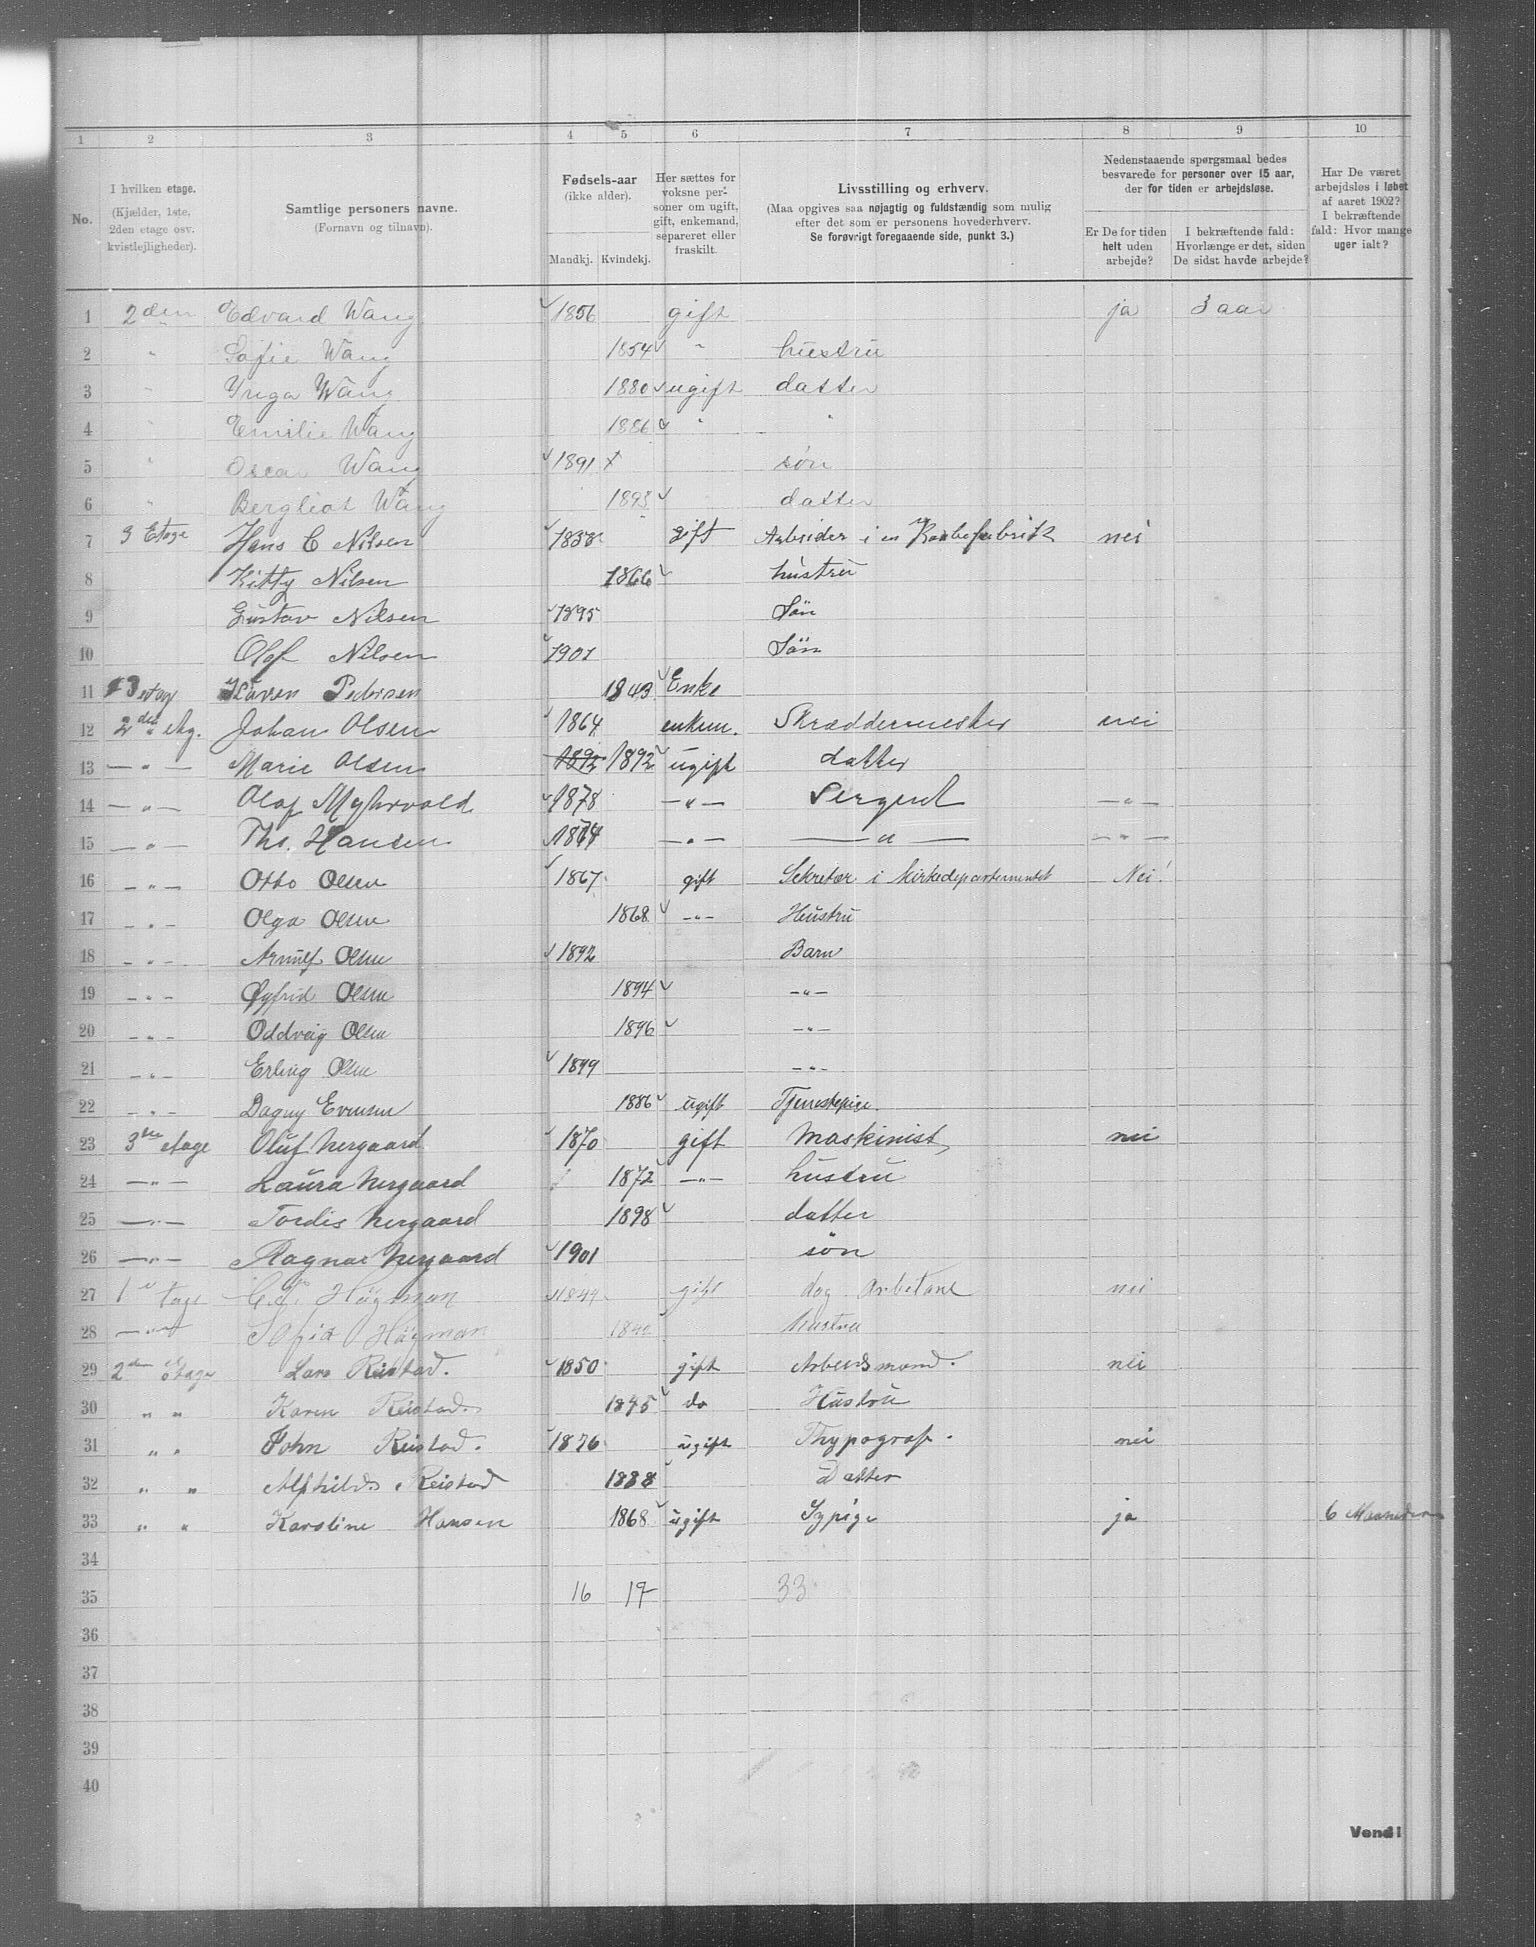 1 2 3 4 5 6 7 8 9 10
No.
I hvilken etage.
(Kjælder, 1ste,
2den etage osv.
kvistlejligheder).
Samtlige personers navne.
(Fornavn og tilnavn).
Fødsels-aar
(ikke alder).
Mandkj. Kvindekj.
Her sættes for
voksne per-
soner om ugift,
gift, enkemand,
separeret eller
fraskilt.
Livsstilling og erhverv.
(Maa opgives saa nøjagtig og fuldstændig som mulig
efter det som er personens hovederhverv.
Se forøvrigt foregaaende side, punkt 3.)
Nedenstaaende spørgsmaal bedes
besvarede for personer over 15 aar,
der for tiden er arbejdsløse.
Er De for tiden
helt uden
arbejde?
I bekræftende fald:
Hvorlænge er det, siden
De sidst havde arbejde?
Har De været
arbejdsløs i løbet
af aaret 1902?
I bekræftende
fald: Hvor mange
uger ialt?
1 2den Edvard Wang 1856 gift ja 3 aar
2 " Sofie Wang 1854 " hustru
3 " Inga Wang 1880 ugift datter
4 " Emilie Wang 1886 " "
5 " Oscar Wang 1891 søn
6 " Bergliot Wang 1893 datter
7 3 Etage Hans C Nilsen 1838 gift Arbeider i en nei
8 Kitty Nilsen 1866 hustru
9 Gustav Nilsen 1895 Sön
10 Olaf Nilsen 1901 Sön
11 3 etag Karen Pedersen 1843 Enke
12 2den etg. Johan Olsen 1864 enkem. Skræddermester nei
13 — " — Marie Olsen 1892 1892 ugift datter
14 — " — Olaf Myhrvold 1878 — " — Sergent — " —
15 — " — Ths. Hansen 1874 — " — — " — — " —
16 — " — Otto Olsen 1867 gift Sekretær i Kirkedepartementet Nei!
17 — " — Olga Olsen 1868 — " — Hustru
18 — " — Arnulf Olsen 1892 Barn
19 — " — Øyfrid Olsen 1894 — " —
20 — " — Oddveig Olsen 1896 — " —
21 — " — Erling Olsen 1899 — " —
22 — " — Dagny Evensen 1886 ugift Tjenestepige.
23 3die etage Oluf Nergaard 1870 gift Maskinist nei
24 — " — Laura Nergaard 1872 — " — hustru
25 — " — Tordis Nergaard 1898 datter
26 — " — Ragnar Nergaard 1901 søn
27 1 etage Högman 1849 gift dag nei
28 — " — Sofia Högman 1840 hustru
29 2den Etage Lars Reistad. 1850 gift Arbeidsmand. nei
30 " " Karen Reistad. 1845 do Hustru
31 " " John Reistad. 1876 ugift Thypograf. nei
32 " " Alfhild Reistad 1888 Datter
33 " " Karoline Hansen 1868 ugift Sypige ja 6 Maaneder
34
35 16 17 33
36
37
38
39
40
Vend!